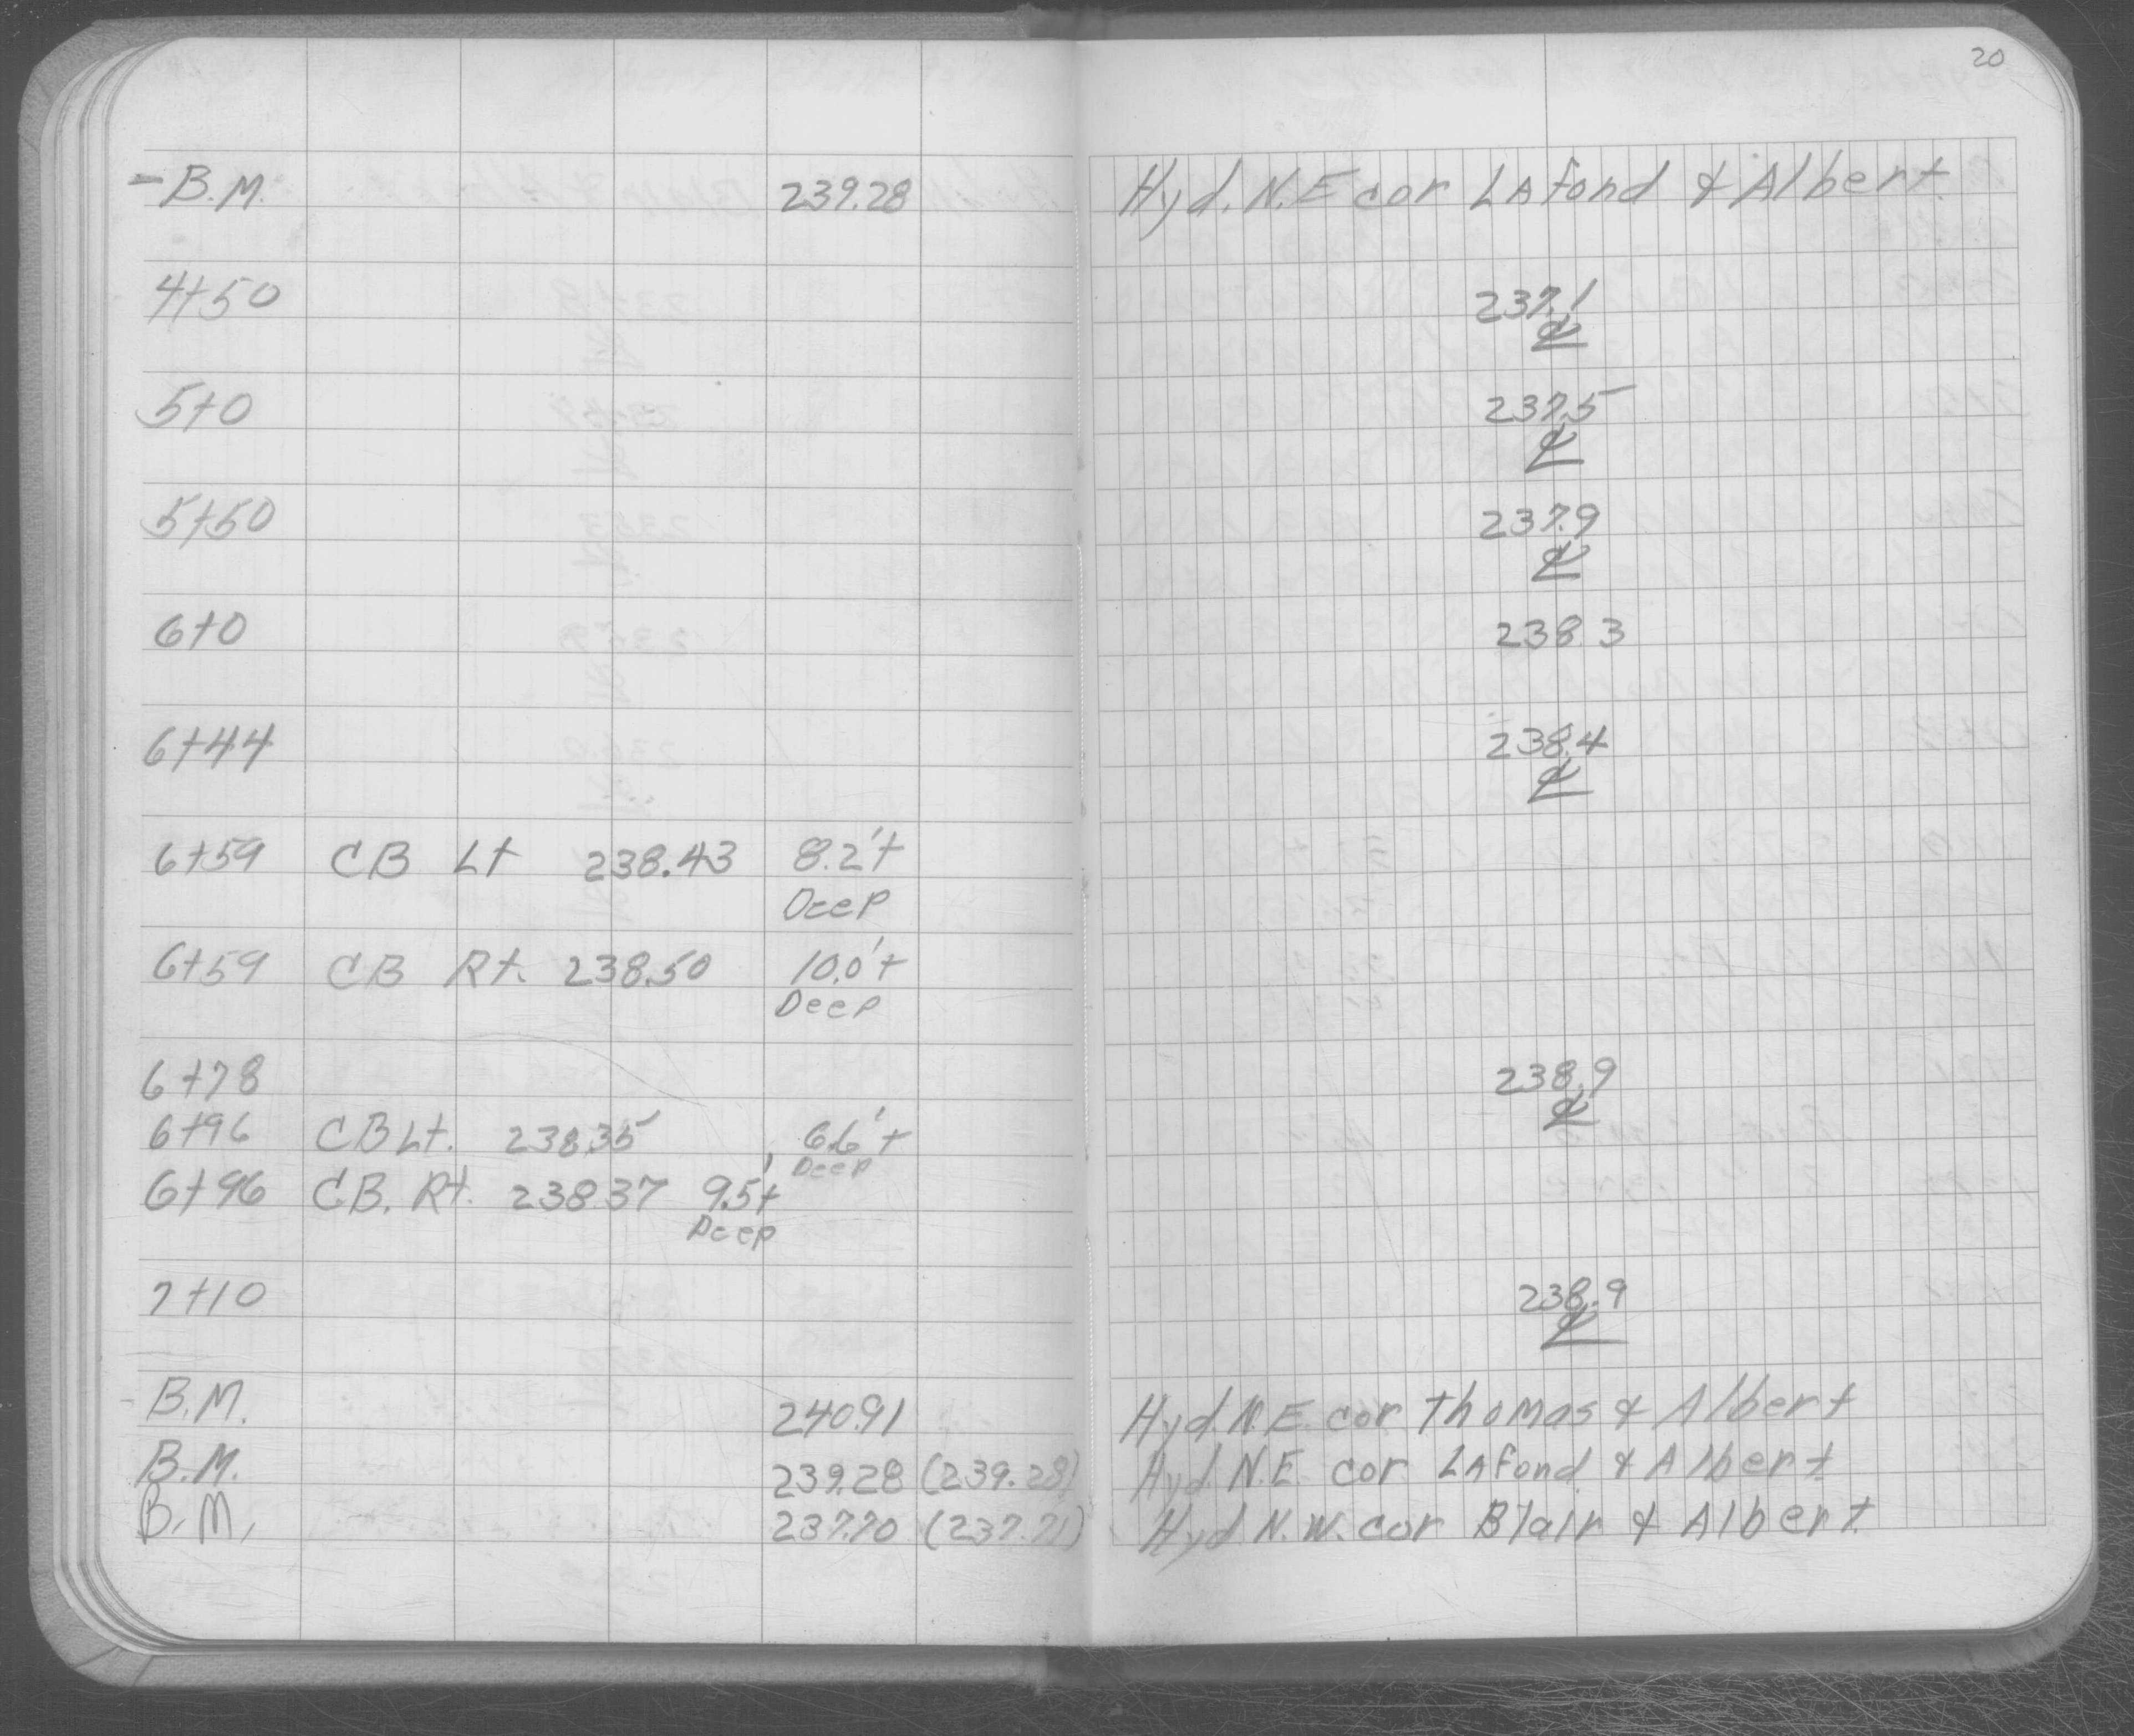 20
- B.M. 239.28 Hyd. N.E cor LAfond & Albert
4+50 237.1
℄
5+0 237.5
℄
5+50 237.9
℄
6+0 238.3
6+44 238.4
℄
6+59 CB Lt 238.43 8.2'±
Deep
6+59 CB Rt. 238.50 10.0'±
Deep
6+78 238.9
℄
6+96 CB Lt. 238.35 6.6'±
Deep
6+96 CB. Rt. 238.37 9.5'±
Deep
7+10 238.9
℄
- B.M. 240.91 Hyd. N.E. cor Thomas & Albert
B.M. 239.28 (239.28) Hyd. N.E. cor LAfond & Albert
B.M. 237.70 (237.71) Hyd N.W. cor Blair & Albert